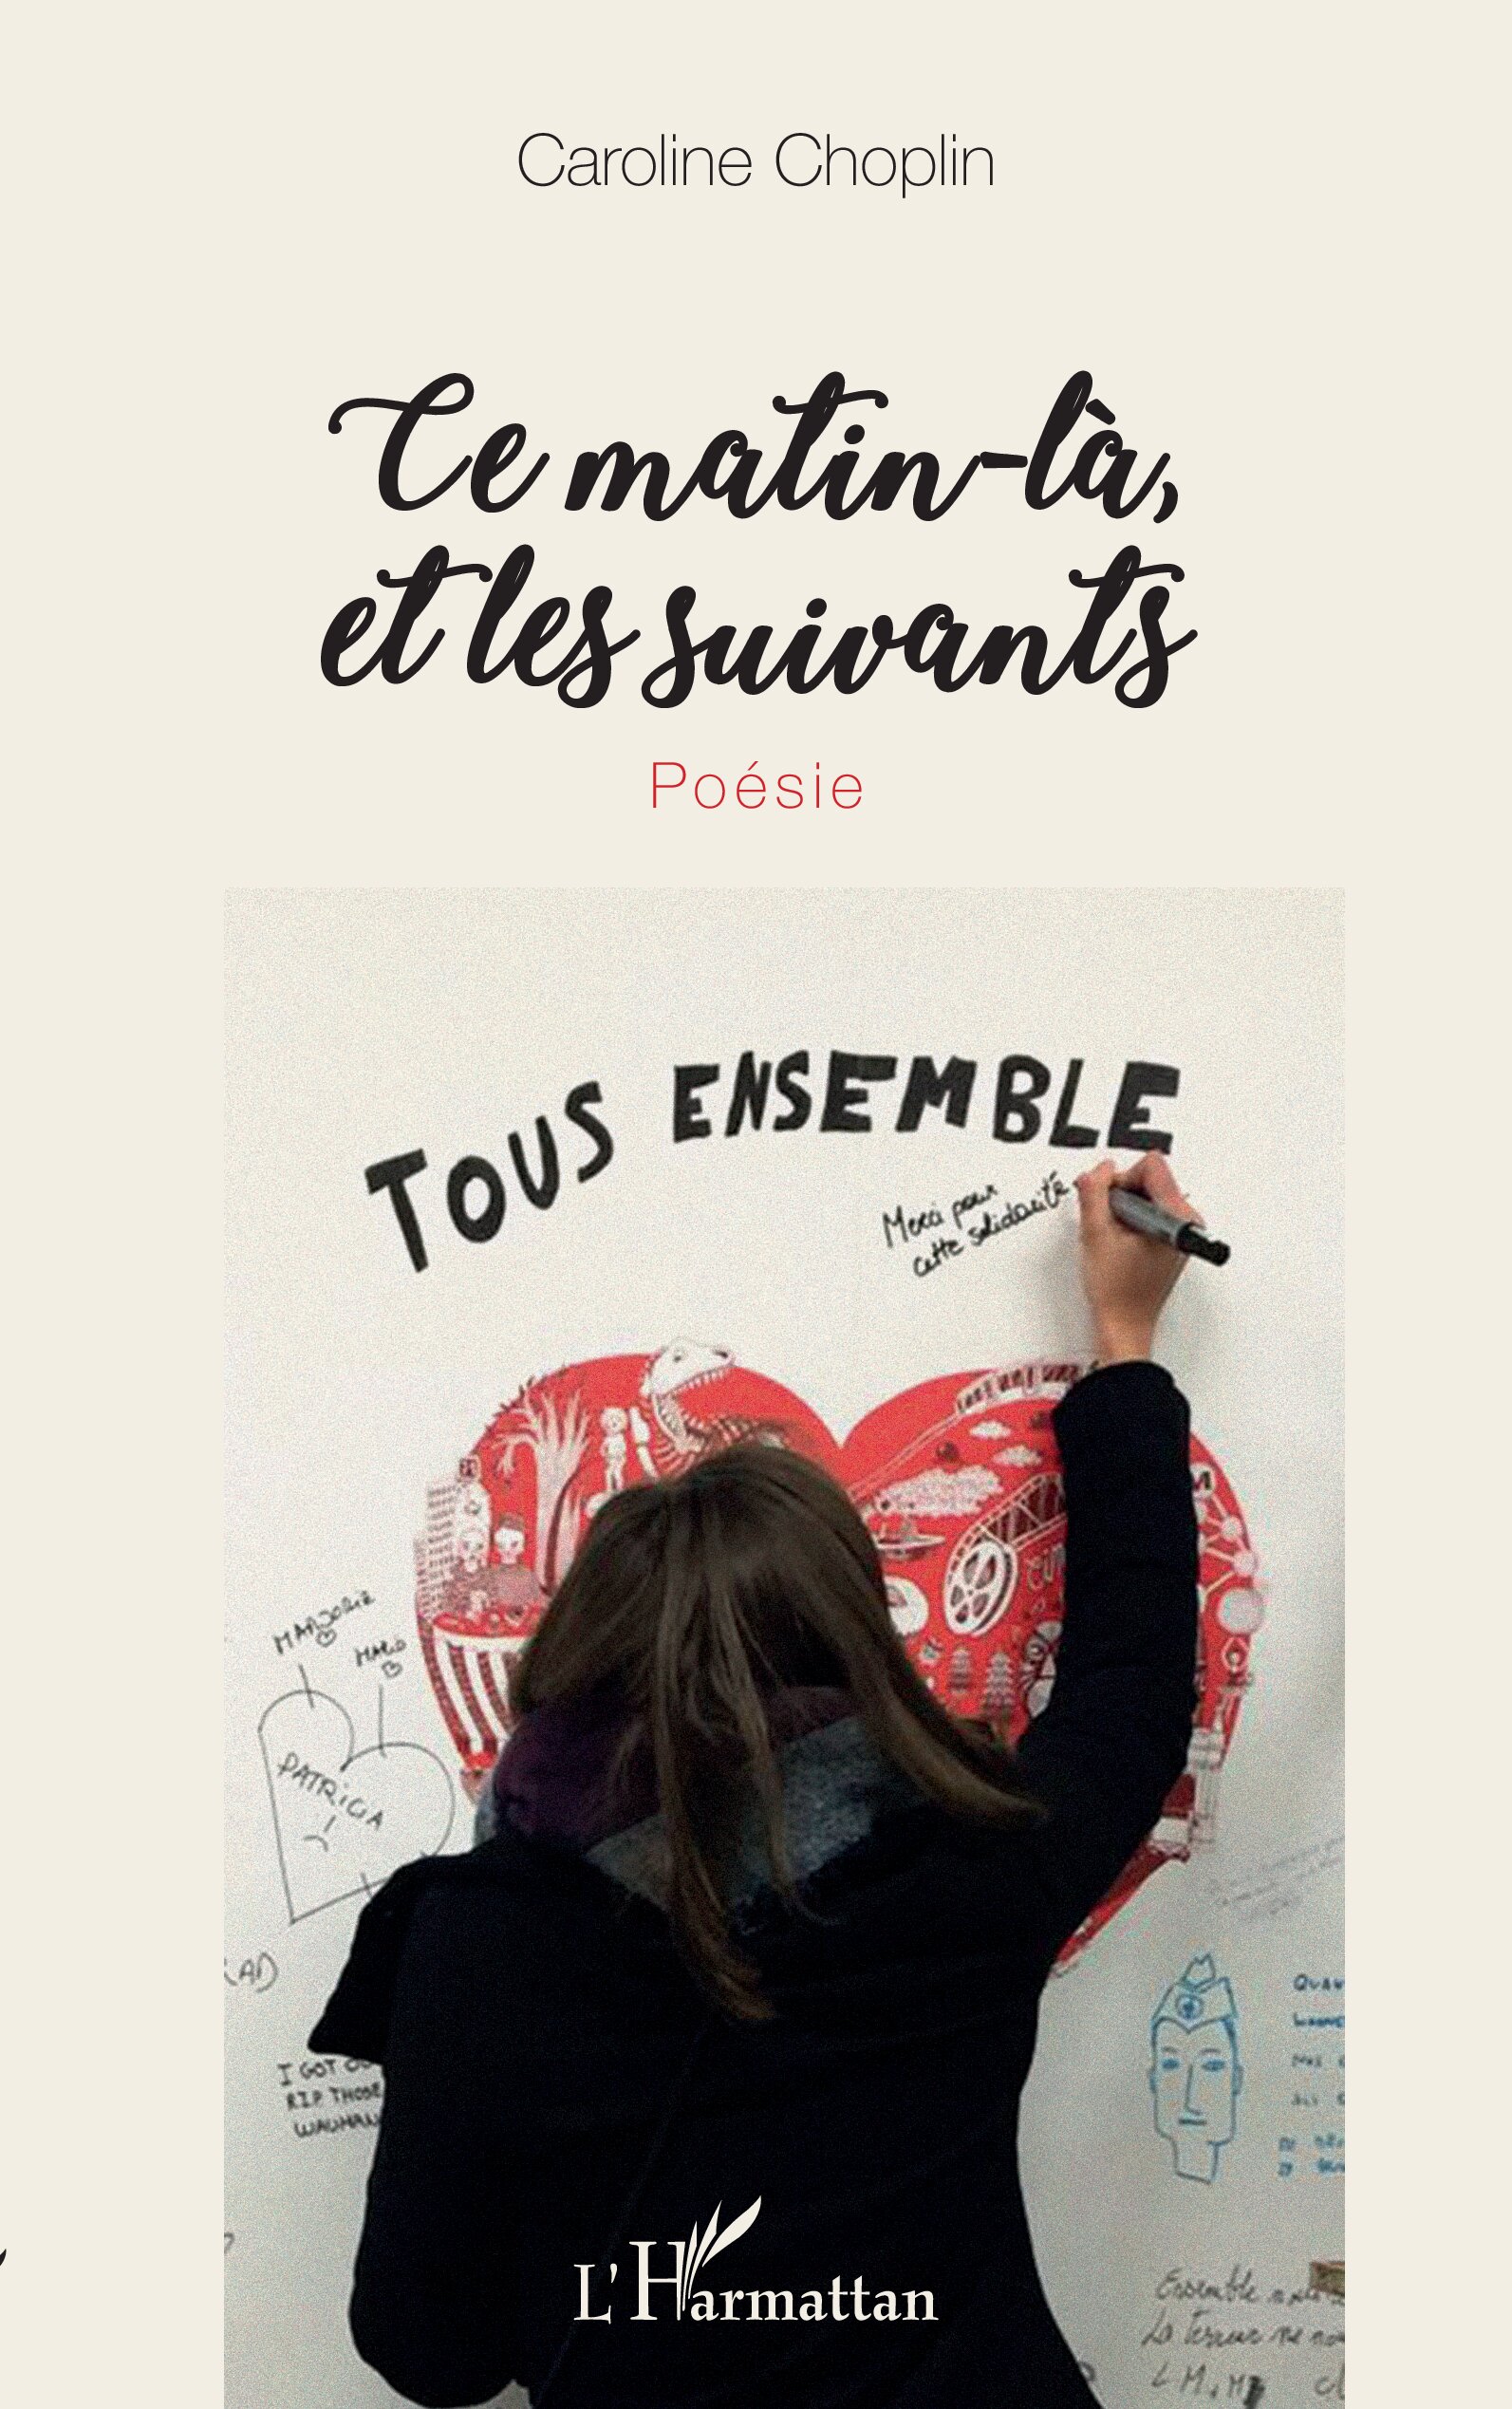 Caroline Choplin
Ce matin-là,
et les suivants
Poésie
TOUS ENSEMBLE
Merci pour
cette solidarité
MARJORIE
MARIO
PATRICIA
I GOT
R.I.P. THOSE
Ensemble
La Terreur ne
L'Harmattan